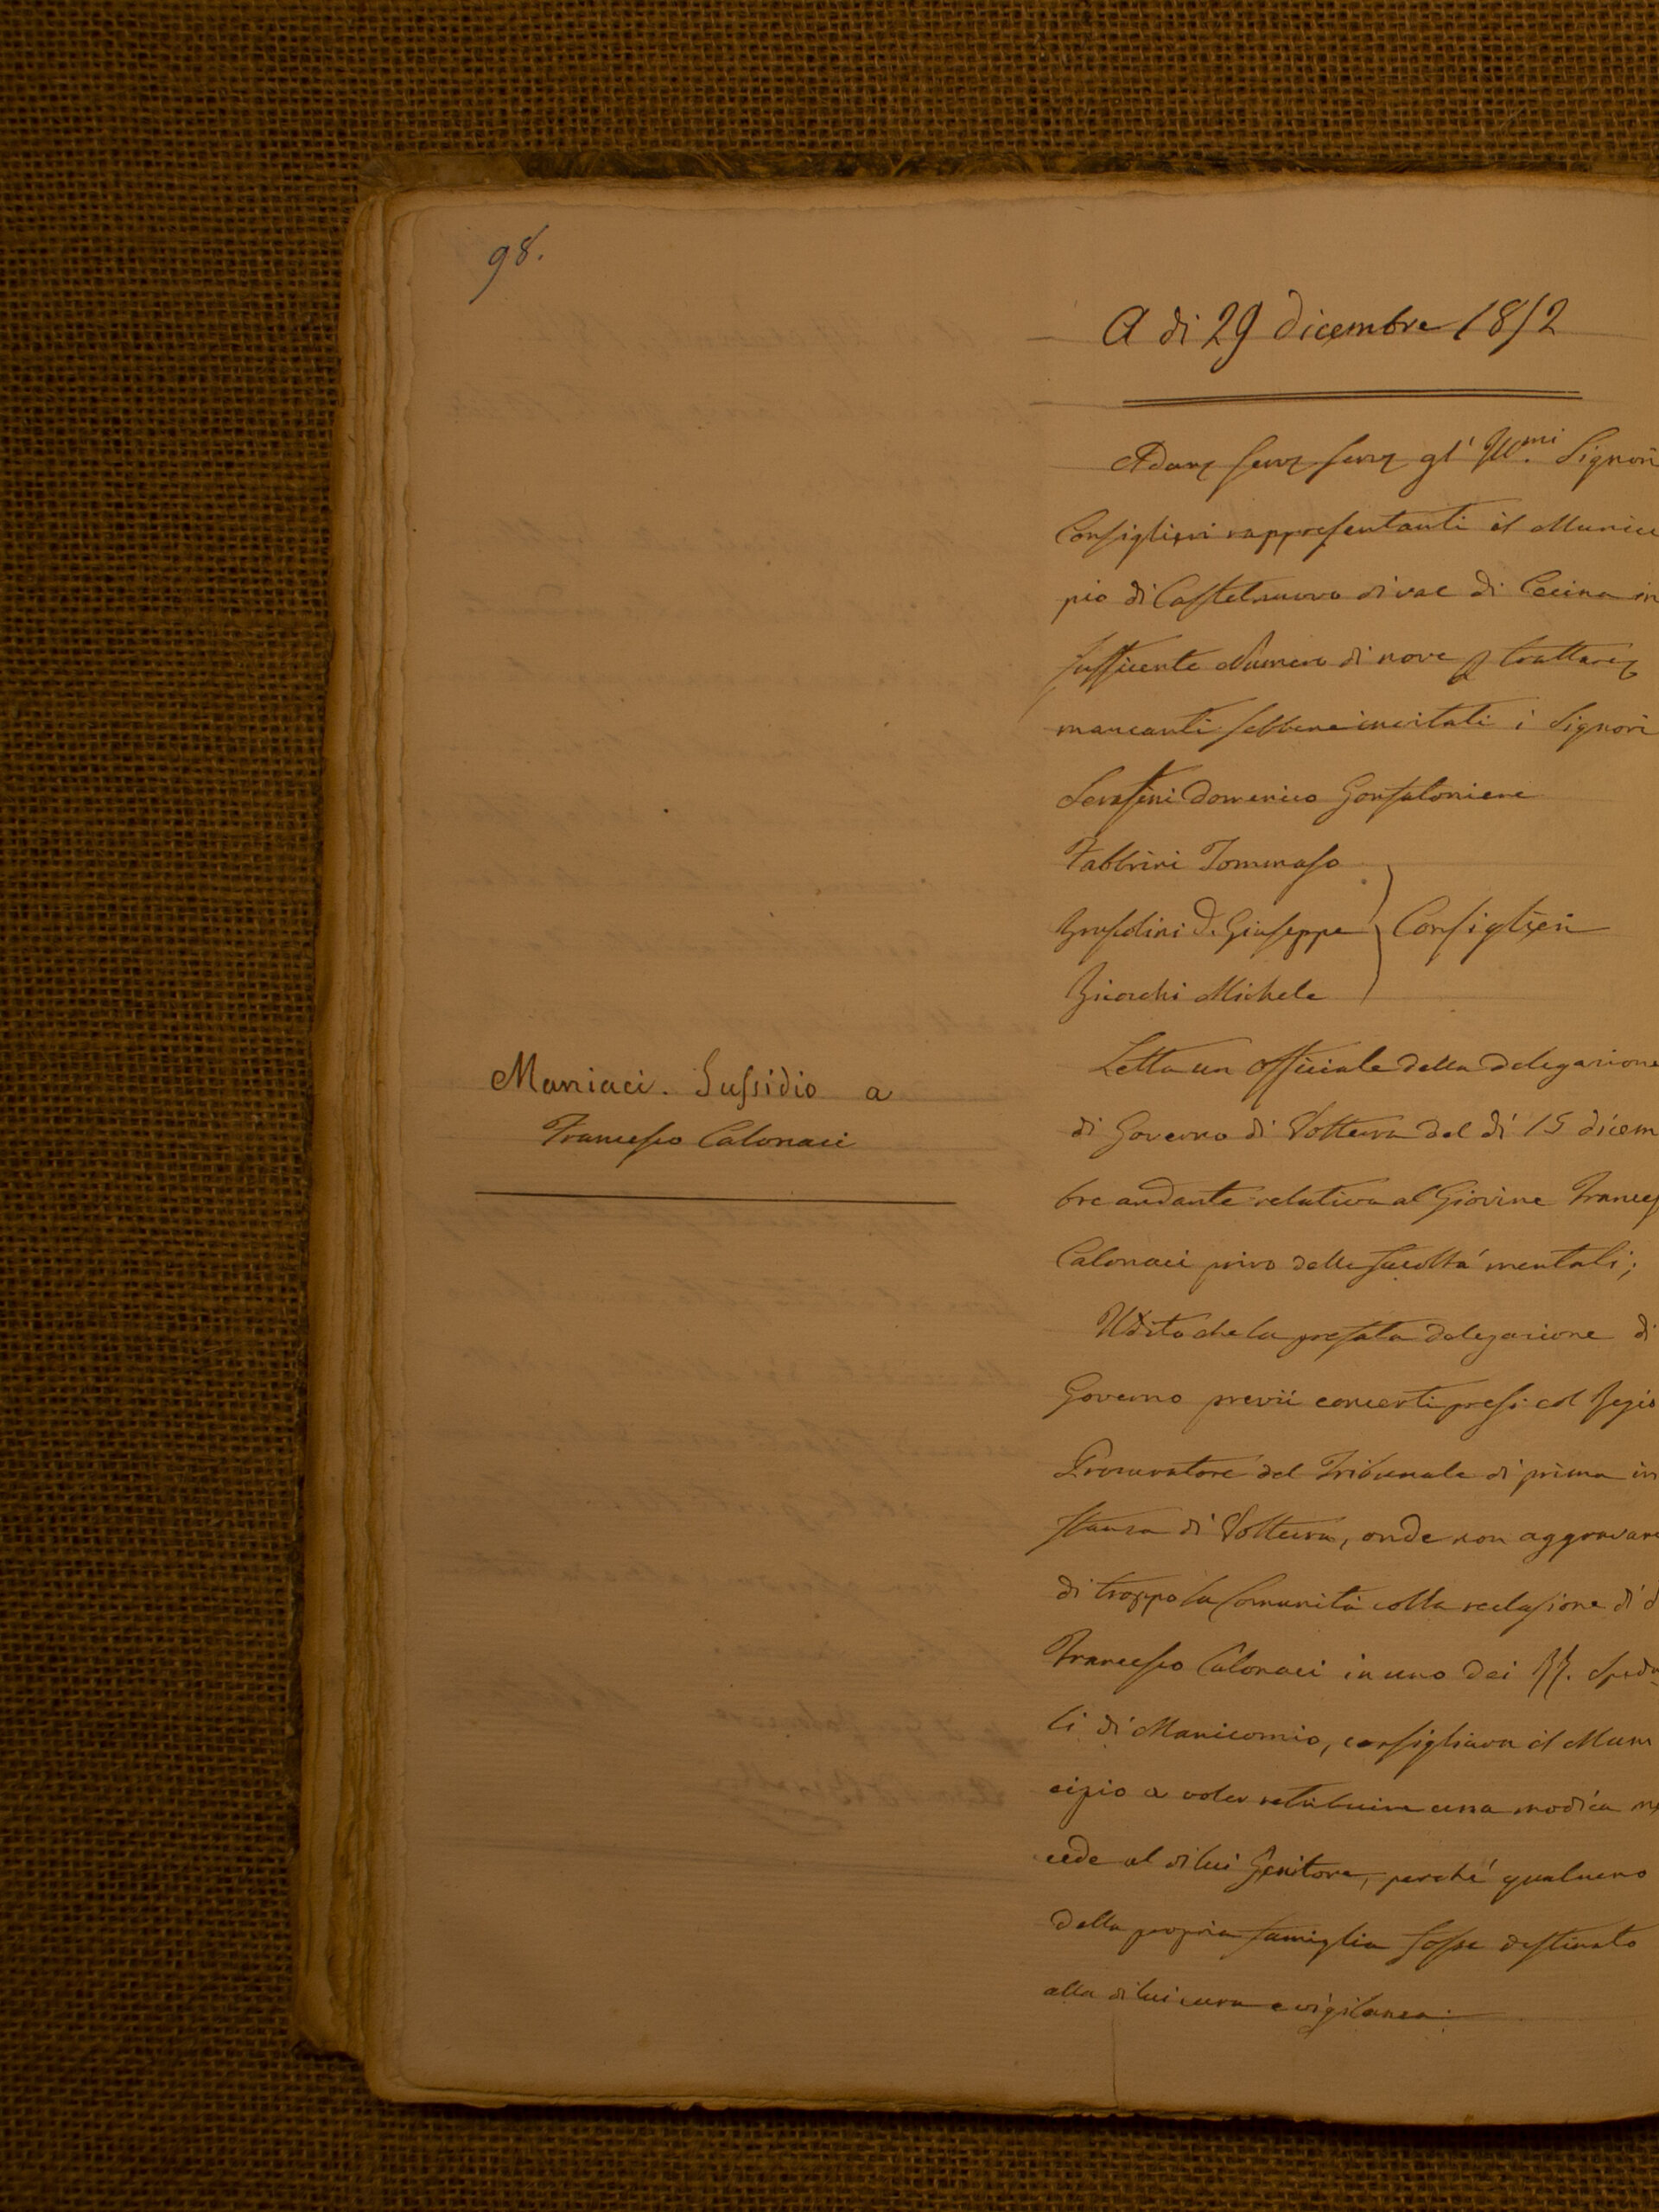 98.
A di 29 dicembre 1852
Adunz. servz. servz. gl' Ill.mi Signori
Consiglieri rappresentanti il Munici
pio di Castelnuovo di val di Cecina in
sufficente Numero di nove p trattarez
mancanti sebbene invitati i Signori
Serafini Domenico Gonfaloniere
Fabbrini Tommaso
D. Giuseppe Consiglieri
Michele
Maniaci. Sussidio a
Francesco Calonaci
Letta un officiale della delegazione
di Governo di Volterra del dì 15 dicem
bre andante relativa al Giovine Francesc
Calonaci privo delle facoltà mentali;
Udito che la prefata delegazione di
Governo previi concerti presi col Regio
Procuratore del Tribunale di prima in
stanza di Volterra, onde non aggravare
di troppo la Comunità colla reclusione di d
Francesco Calonaci in uno dei RR. Speda
li di Manicomio, consigliava il Muni
cipio a voler retribuire una modica mer
cede al di lui Genitore, perché qualcuno
della propria famiglia fosse destinato
alla di lui cura e vigilanza.